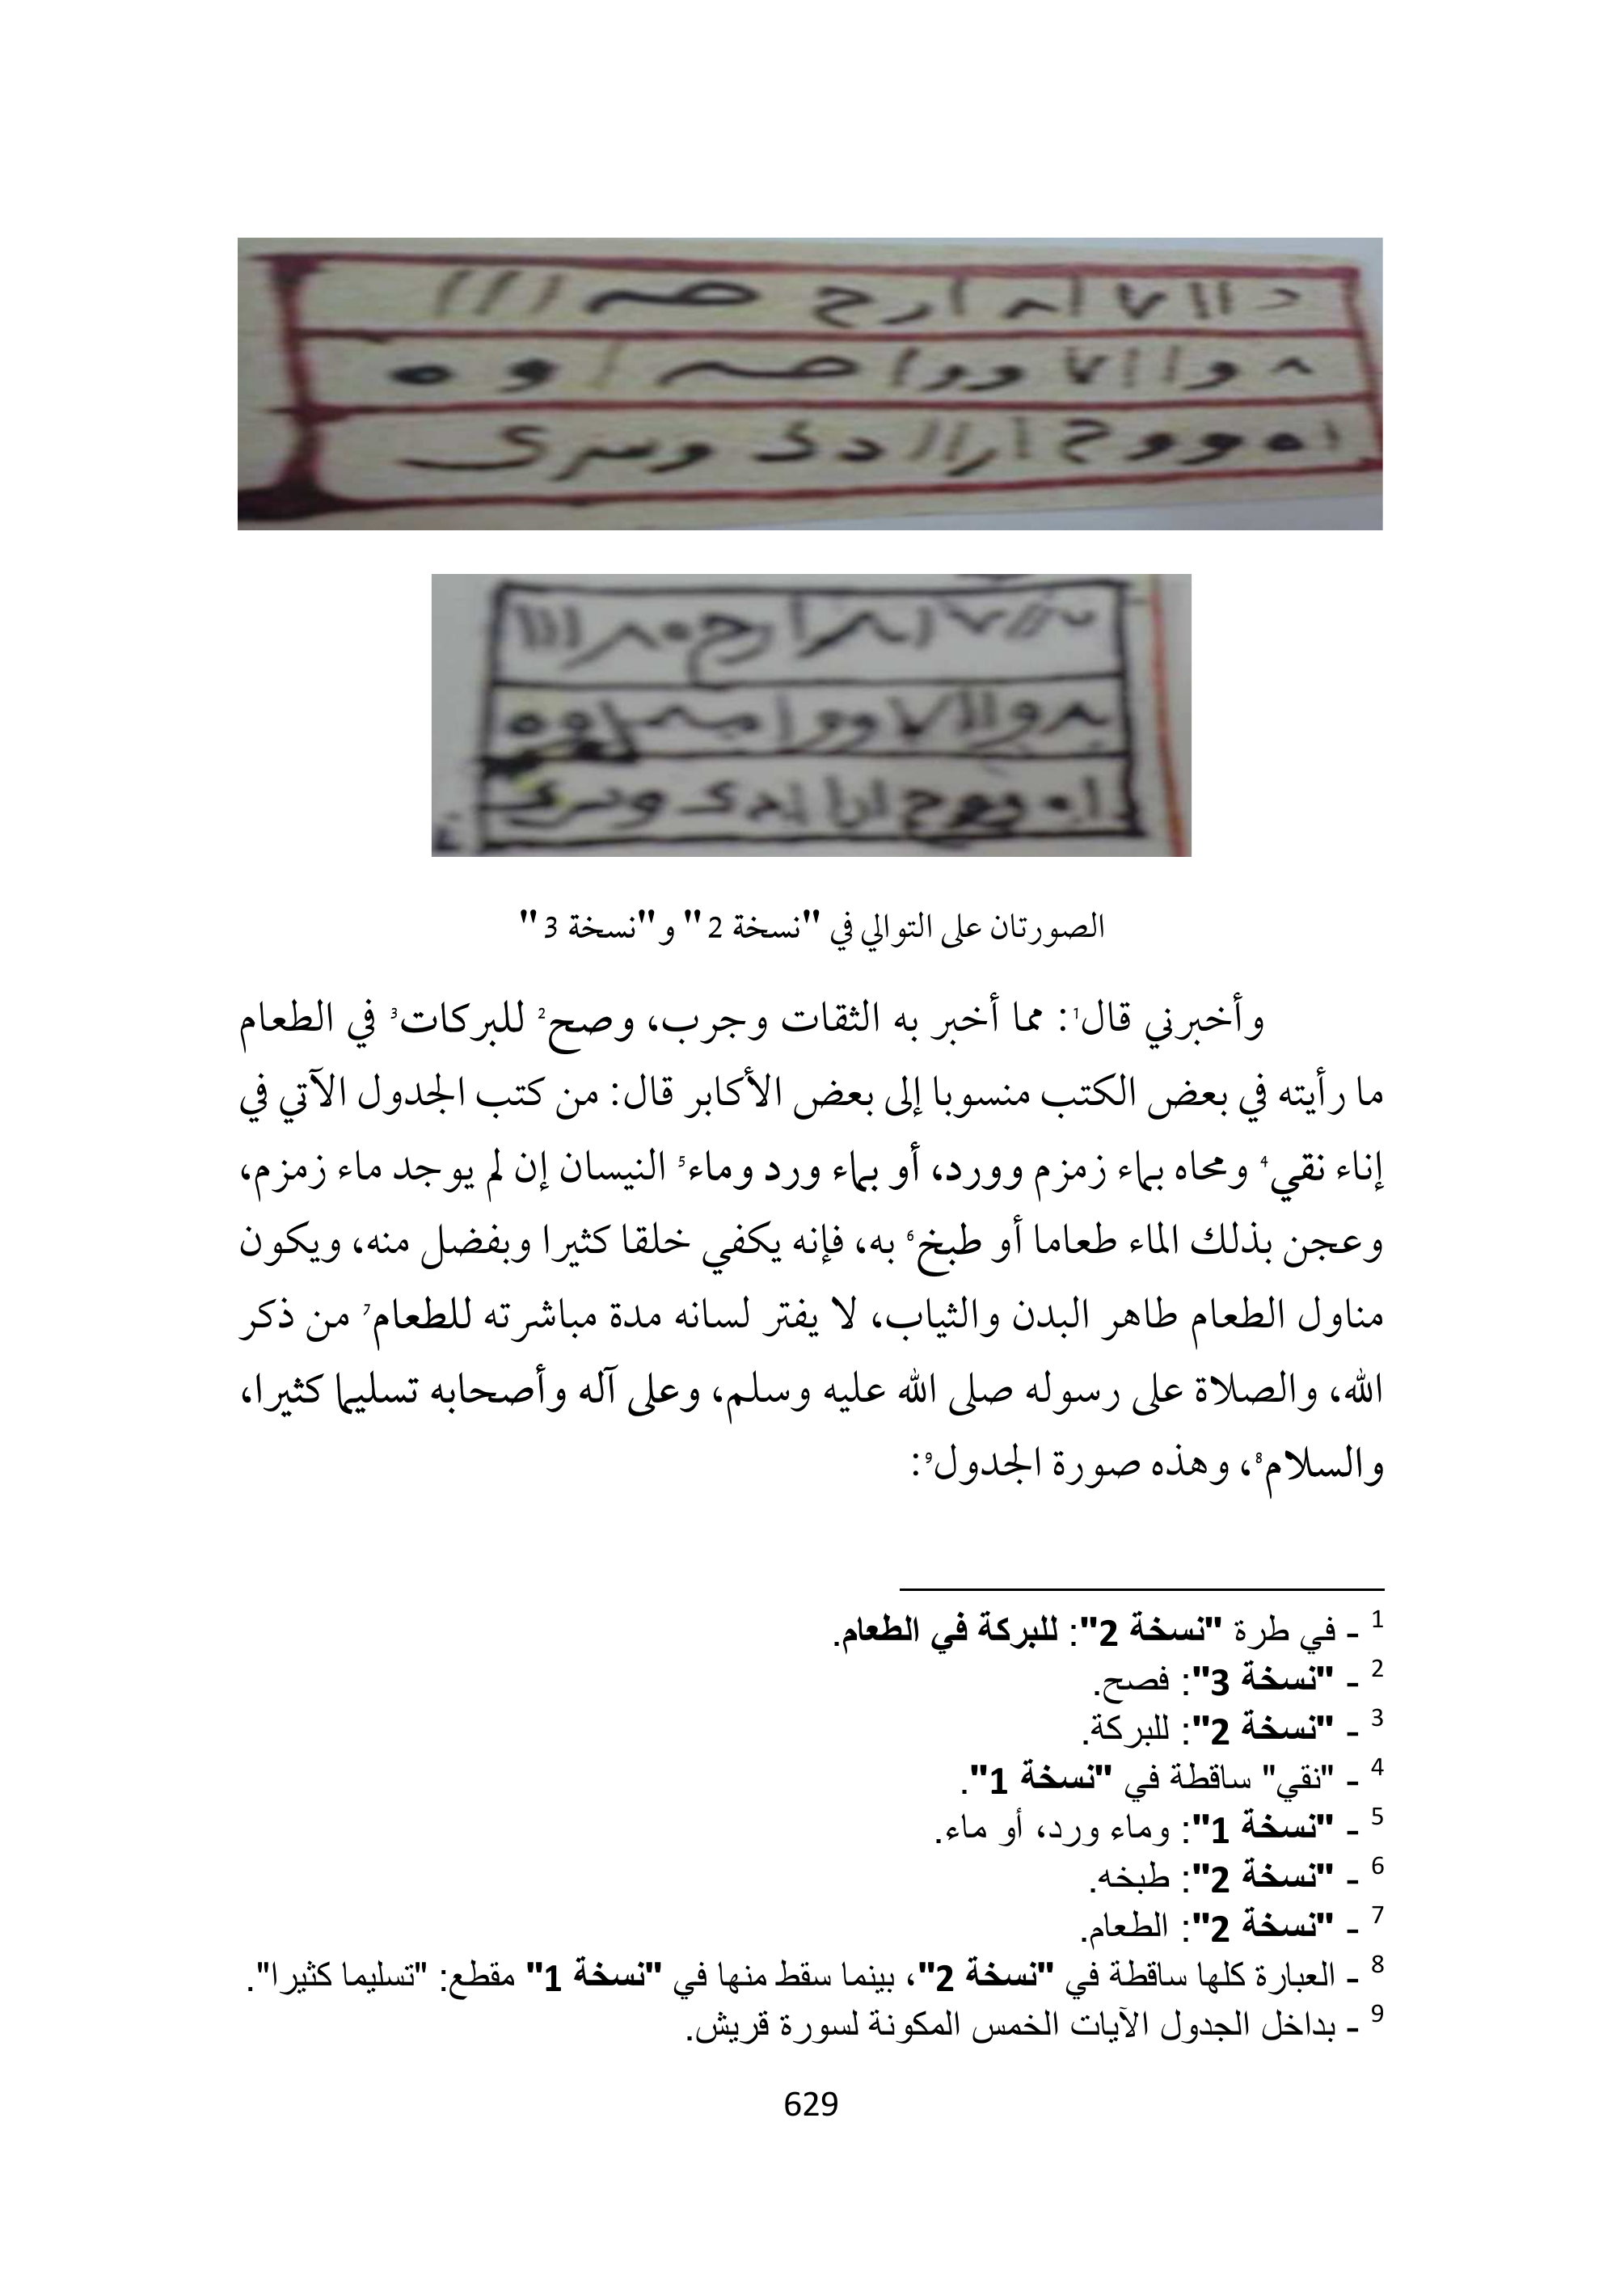 الصورتان على التوالي في "نسخة 2" و"نسخة 3"
وأخبرني قال1: مما أخبر به الثقات وجرب، وصح2 للبركات3 في الطعام
ما رأيته في بعض الكتب منسوبا إلى بعض الأكابر قال: من كتب الجدول الآتي في
إناء نقي4 ومحاه بماء زمزم وورد، أو بماء ورد وماء5 النيسان إن لم يوجد ماء زمزم،
وعجن بذلك الماء طعاما أو طبخ6 به، فإنه يكفي خلقا كثيرا وبفضل منه، ويكون
مناول الطعام طاهر البدن والثياب، لا يفتر لسانه مدة مباشرته للطعام7 من ذكر
الله، والصلاة على رسوله صلى الله عليه وسلم، وعلى آله وأصحابه تسليما كثيرا،
والسلام8، وهذه صورة الجدول9:
1 - في طرة "نسخة 2": للبركة في الطعام.
2 - "نسخة 3": فصح.
3 - "نسخة 2": للبركة.
4 - "نقي" ساقطة في "نسخة 1".
5 - "نسخة 1": وماء ورد، أو ماء.
6 - "نسخة 2": طبخه.
7 - "نسخة 2": الطعام.
8 - العبارة كلها ساقطة في "نسخة 2"، بينما سقط منها في "نسخة 1" مقطع: "تسليما كثيرا".
9 - بداخل الجدول الآيات الخمس المكونة لسورة قريش.
629